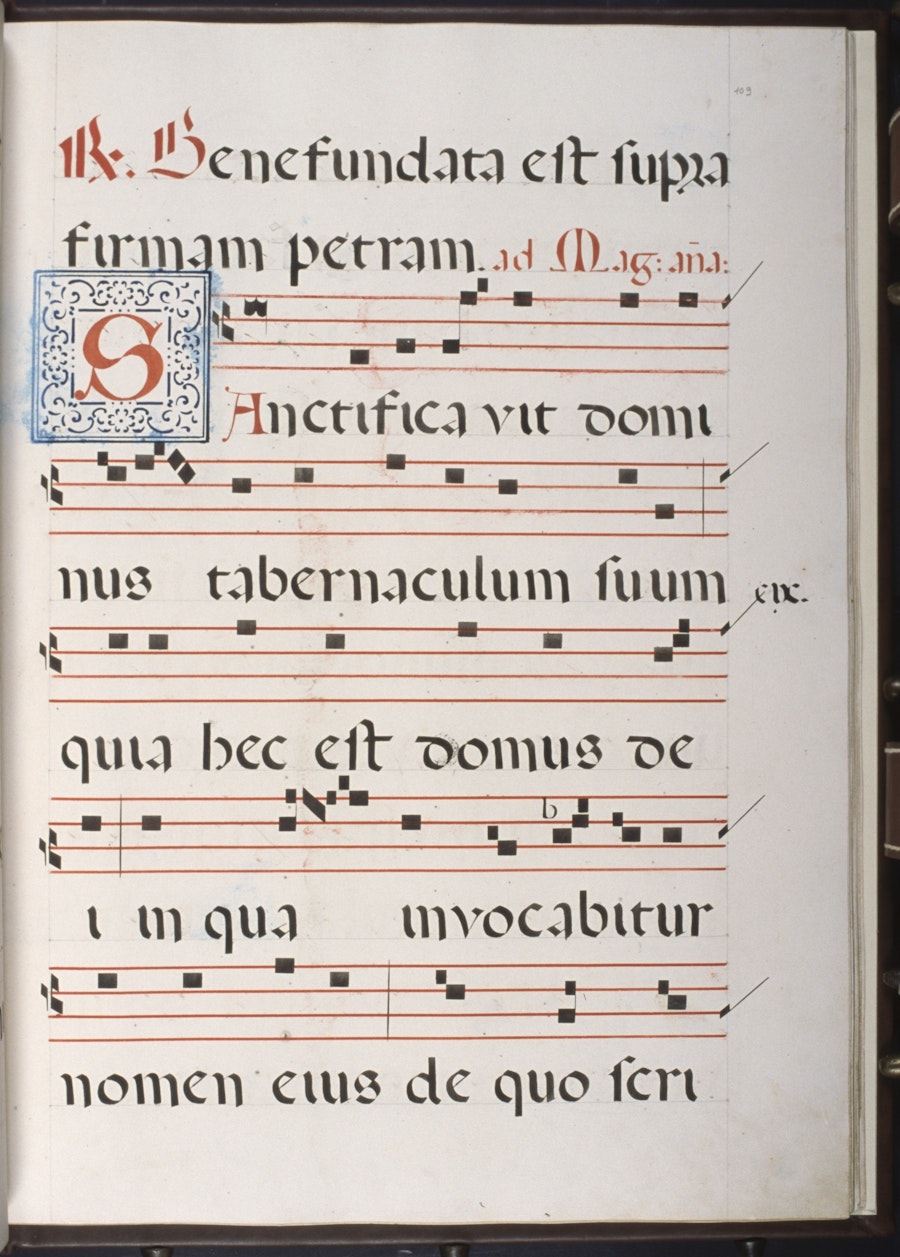 109
℟. Benefundata est supra
firmam petram. ad Mag: aña:
SAnctifica vit domi
nus tabernaculum suum
quia hec est domus de
b
i in qua invocabitur
nomen eius de quo scri